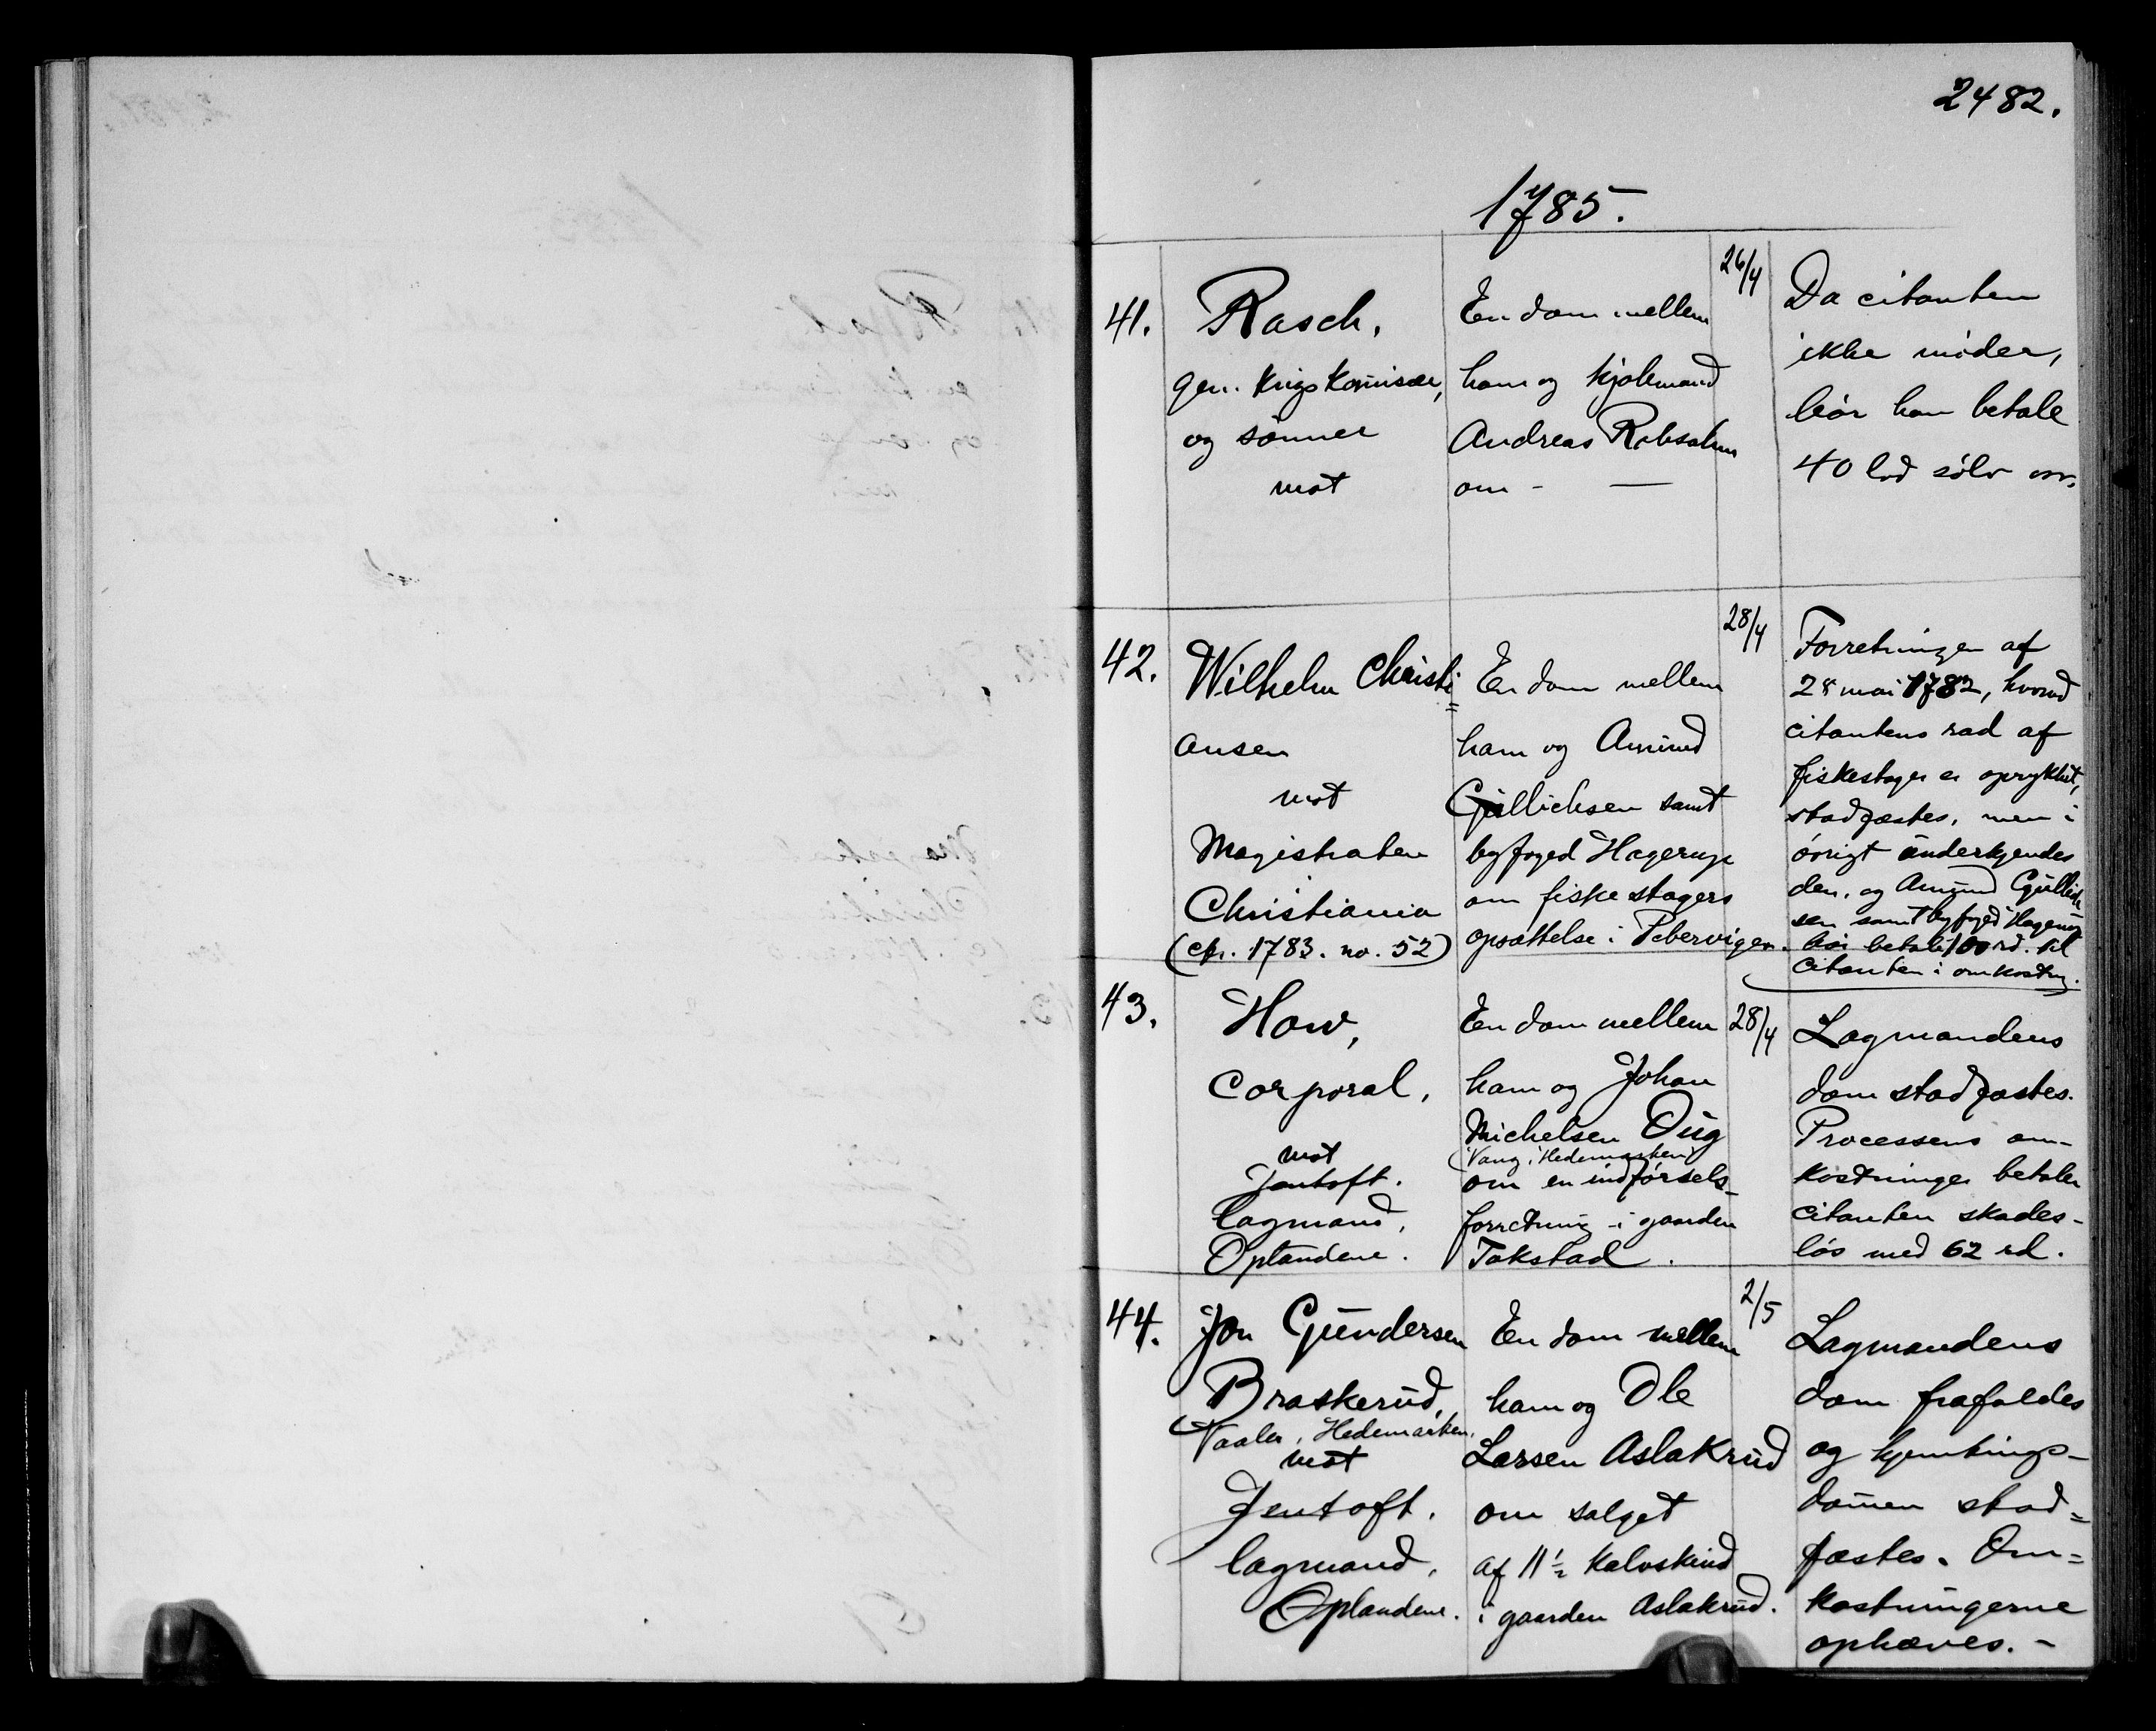 2482.
1785.
41.
Rasch,
gen. Krigskomisær,
og sønner
mot
En dom mellem
ham og kjøbmand
Andreas Robsahm
om - —
26/4
Da citanten
ikke møder,
bør han betale
40 lod sølv
42.
Wilhelm Christi=
ansen
mot
Magistraten
Christiania
(cfr. 1783. no. 52)
En dom mellem
ham og Amund
Gullichsen samt
byfoged Hagerup
om fiskestagers
opsættelse i Pebervigen.
28/4
Forretningen af
28 mai 1782, hvorved
citantens rad af
fiskestager er oprykket,
stadfæstes, men i
øvrigt underkjendes
den, og Amund Gullich
sen samt byfoged Hagerup
bør betale 100 rd. til
citanten i omkostn.
43.
How,
Corporal,
mot
Jentoft.
lagmand,
Oplandene.
En dom mellem
ham og Johan
Michelsen Oug
(Vang, Hedemarken)
om en indførsels-
forretning i gaarden
Takstad.
28/4
Lagmandens
dom stadfæstes.
Processens om-
kostninger betaler
citanten skades-
løs med 62 rd.
44.
Jon Gundersen
Braskerud,
Vaaler, Hedemarken,
mot
Jentoft.
lagmand,
Oplandene.
En dom mellem
ham og Ole
Larsen Aslakrud
om salget
af 11½ kalvskind
i gaarden Aslakrud.
2/5
Lagmandens
dom frafaldes
og hjemtings-
dommen stad=
fæstes. Om=
kostningerne
ophæves. -